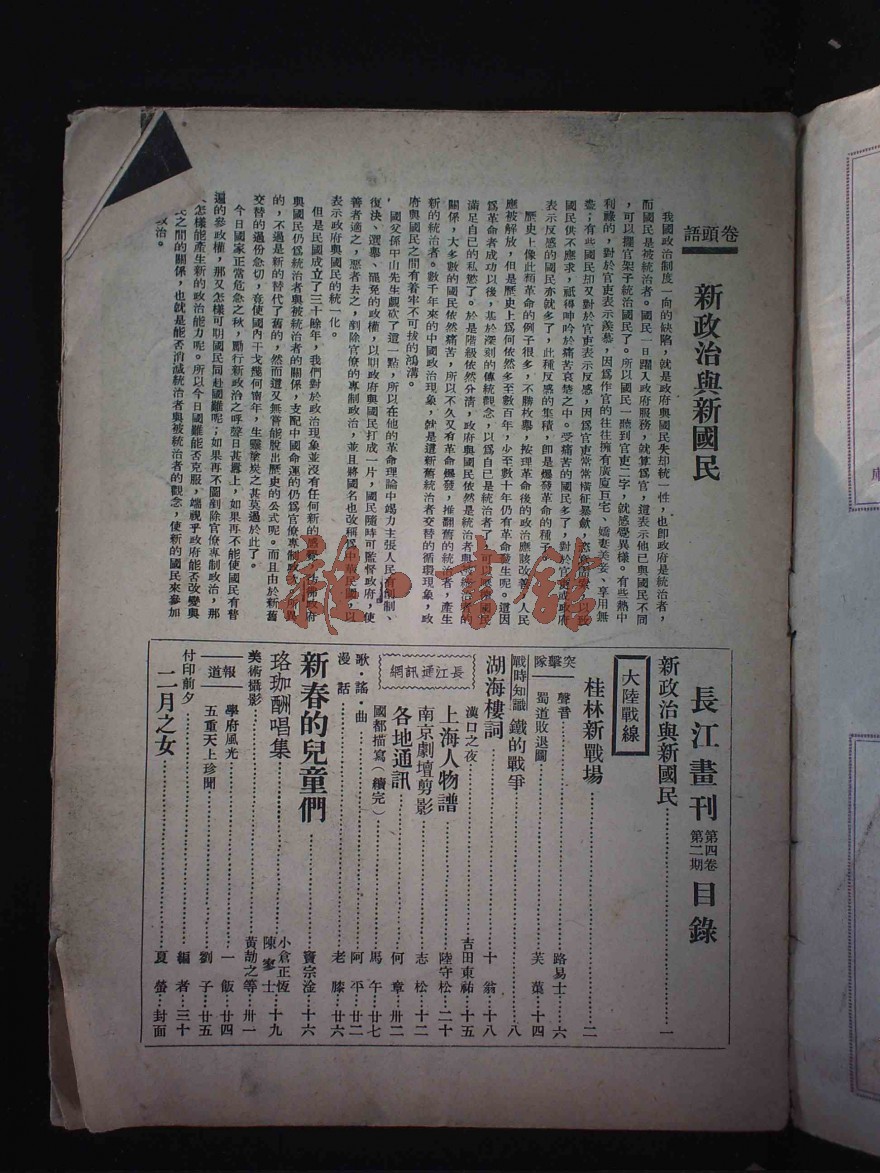 卷頭語
新政治與新國民
我國政治制度一向的缺陷，就是政府與國民失却統一性，也卽政府是統治者，
而國民是被統治者。國民一日躍入政府服務，就算爲官，這表示他已與國民不同
，可以擺官架子統治國民了。所以國民一聽到官吏二字，就感覺異樣。有些熱中
利祿的，對於官吏表示羨慕，因爲作官的往往擁有廣廈巨宅、嬌妻美妾、享用無
臺；有些國民却又對於官吏表示反感，因爲官吏常常橫征暴歛，
國民供不應求，祇得呻吟於痛苦哀楚之中。受痛苦的國民多了，對於官吏或政府
表示反感的國民亦就多了，此種反感的集積，卽是爆發革命的種子。
歷史上像此類革命的例子很多，不勝枚舉，按理革命後的政治應該改善，人民
應被解放，但是歷史上爲何依然多至數百年，少至數十年仍有革命發生呢。這因
爲革命者成功以後，基於深刻的傳統觀念，以爲自己是統治者，可以壓榨國民
滿足自己的私慾了。於是階級依然分淸，政府與國民依然是統治者與被統治者的
關係，大多數的國民依然痛苦，所以不久又有革命爆發，推翻舊的統治者，產生
新的統治者。數千年來的中國政治現象，就是這新舊統治者交替的循環現象，政
府與國民之間有着牢不可拔的鴻溝。
國父孫中山先生覷破了這一點，所以在他的革命理論中竭力主張人民有創制、
復決、選舉、罷免的政權，以期政府與國民打成一片，國民隨時可監督政府，使
善者適之，惡者去之，剷除官僚的專制政治，並且將國名也改稱爲中華民國，以
表示政府與國民的統一化。
但是民國成立了三十餘年，我們對於政治現象並沒有任何新的感覺，仿佛政府
與國民仍爲統治者與被統治者的關係，支配中國命運的仍爲官僚專制政治，所異
的，不過是新的替代了舊的，然而這又無嘗能脫出歷史的公式呢。而且由於新舊
交替的過份急切，竟使國內干戈幾何甯年，生靈塗炭之甚莫過於此了。
今日國家正當危急之秋，勵行新政治之呼聲日甚囂上，如果再不能使國民有普
遍的參政權，那又怎樣可期國民同赴國難呢；如果再不圖剷除官僚專制政治，那
怎樣能產生新的政治能力呢。所以今日國難能否克服，端視乎政府能否改變與
民之間的關係，也就是能否消滅統治者與被統治者的觀念，使新的國民來參加
政治。
長江畫刊 第四卷 第二期 目錄
新政治與新國民……一
大陸戰線
桂林新戰場……二
突擊隊
聲音……路易士……六
蜀道敗退圖……芙蕖……十四
戰時知識 鐵的戰爭……八
湖海樓詞……十翁……十八
漢口之夜……吉田東祐……十五
長江通訊網
上海人物譜……陸守松……二十
南京劇壇剪影……志松……十二
各地通訊……何章……卅二
國都描寫（續完）……馬午……廿七
歌・謠・曲……阿平……廿二
漫話……老滕……廿六
新春的兒童們……竇宗淦……十六
珞珈酬唱集……小倉正恆 陳寥士……十九
美術攝影……黃劼之等……卅一
報道
學府風光……一飯……廿四
五重天上珍聞……劉子……廿五
付印前夕……編者……三十
二月之女……夏螢……封面
雜·書館